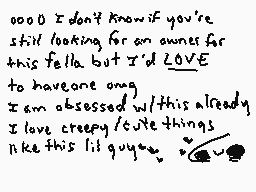 oooo I don't know if you're
still looking for an owner for
this fella but I'd LOVE
to have one omg
I am obsessed w/this already
I love creepy/cute things
like this lil guy